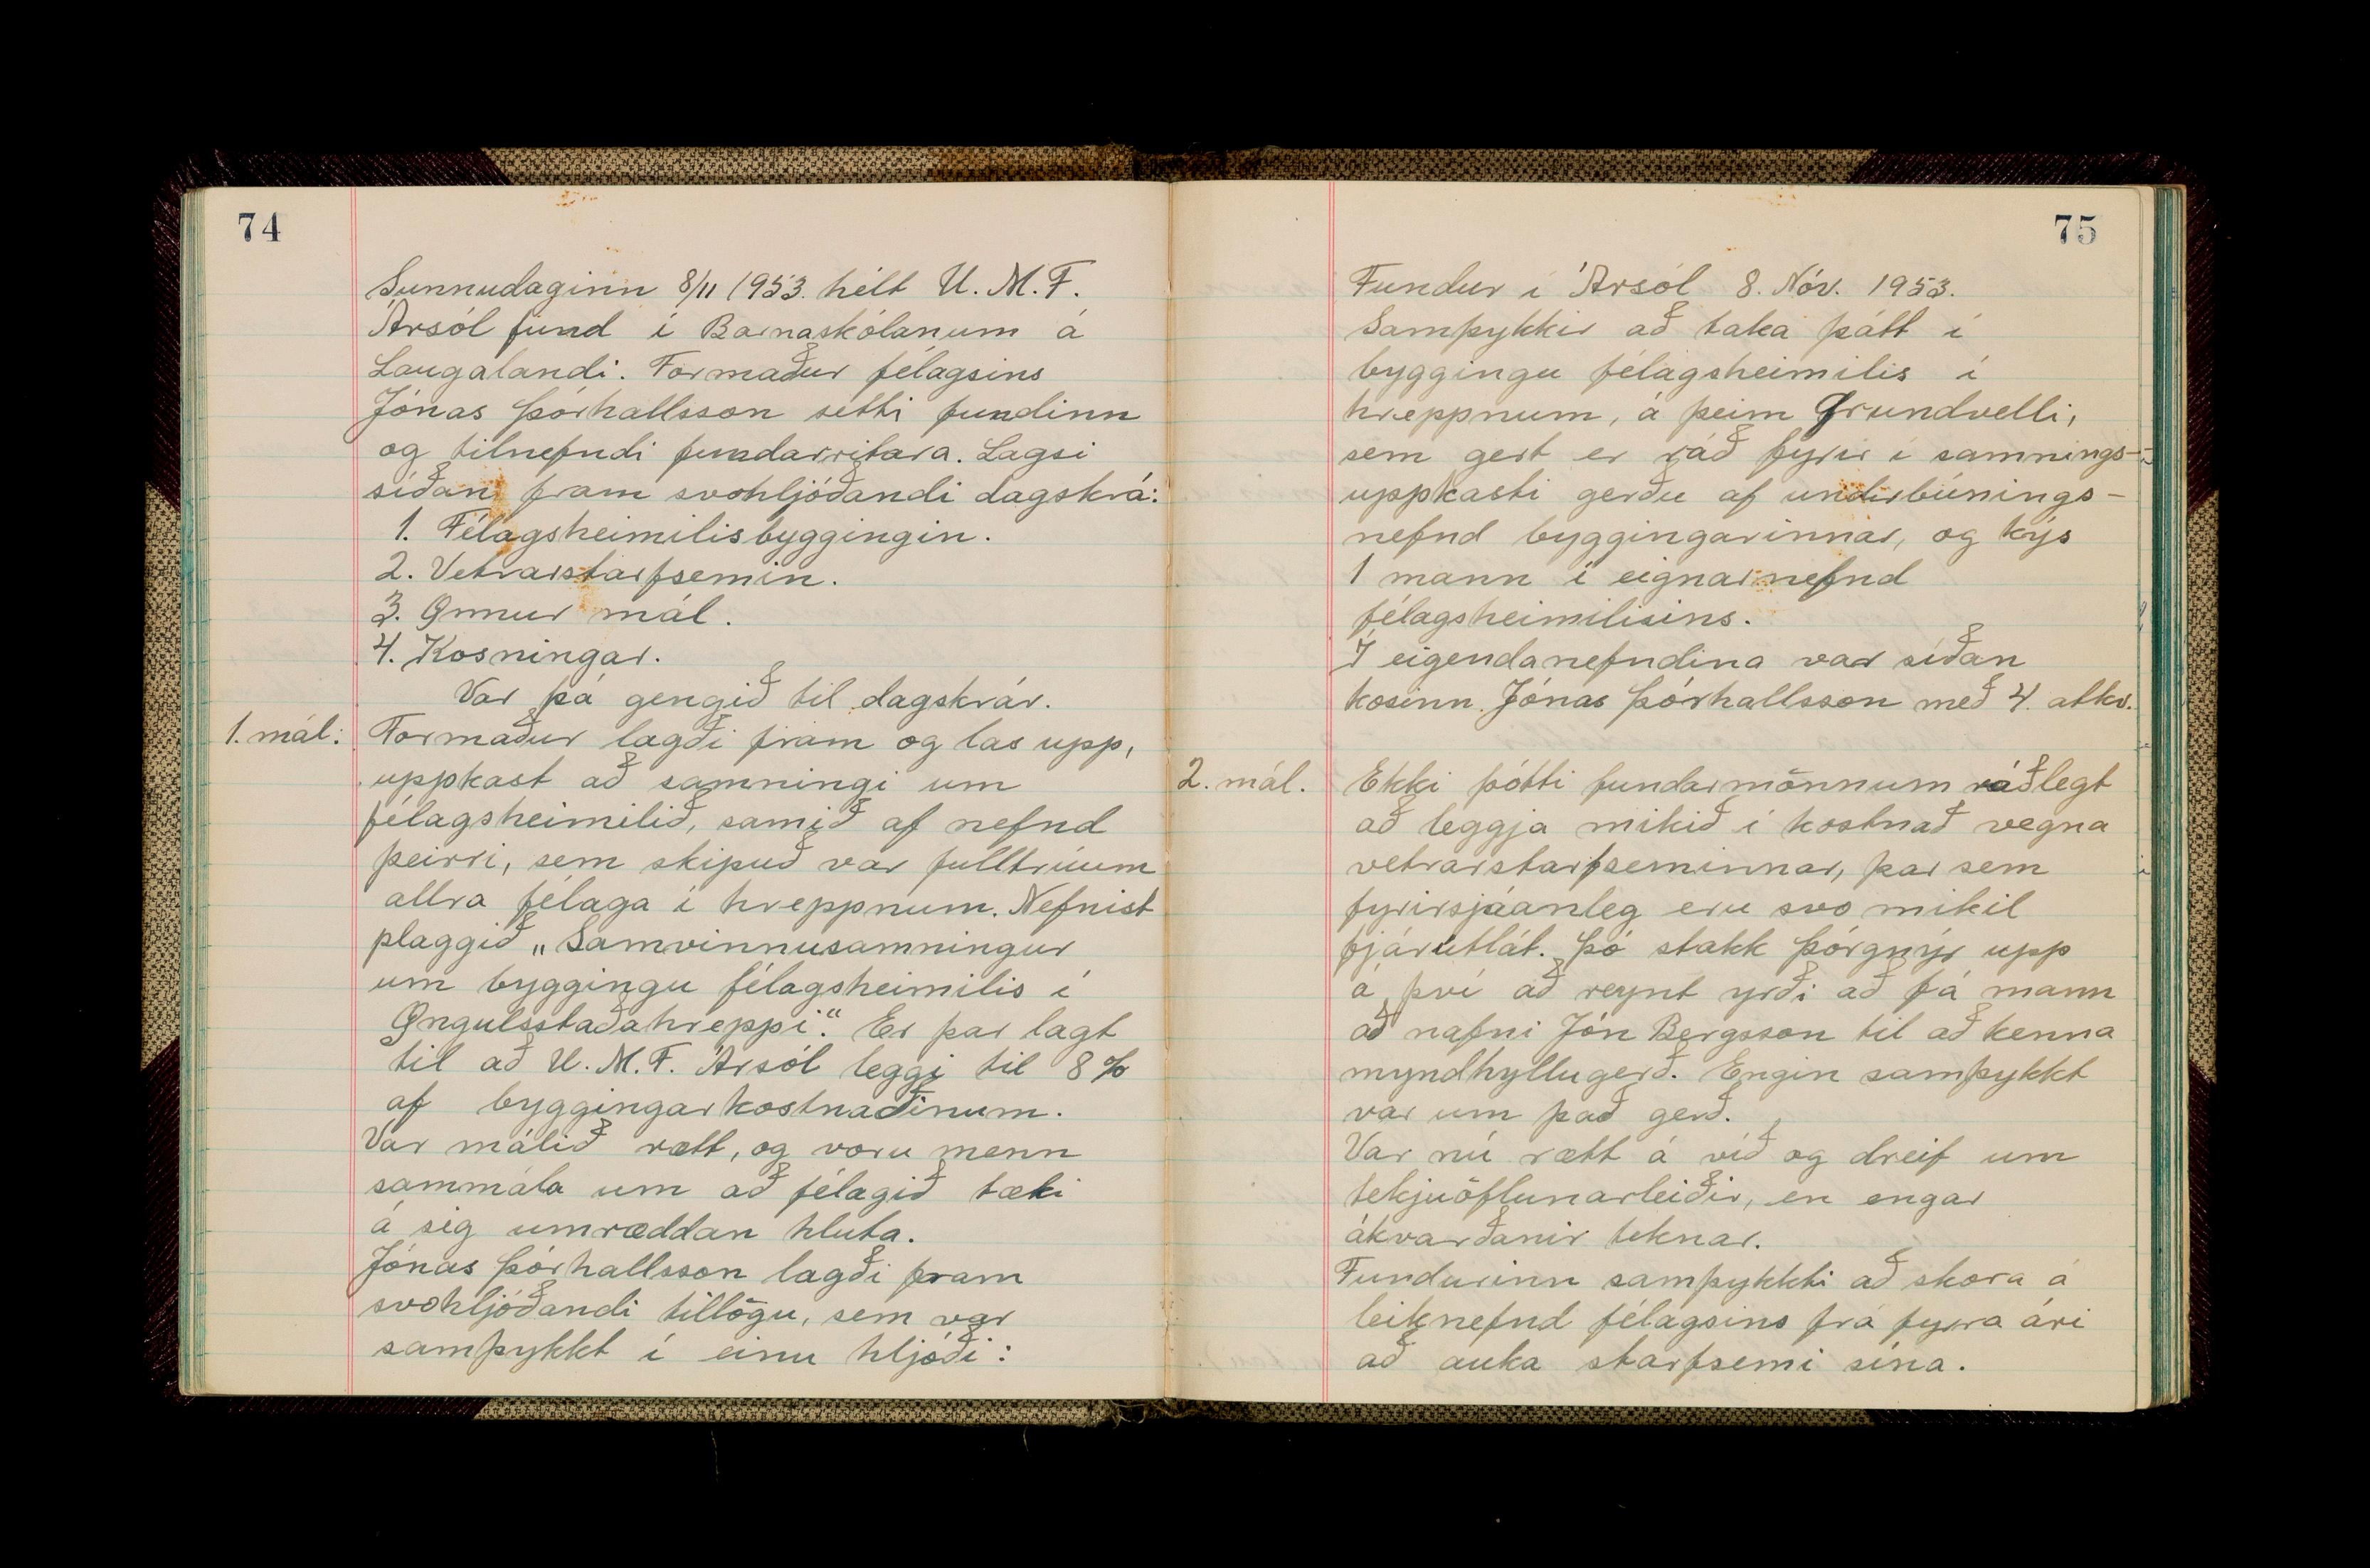 74
Sunnudaginn 8/11 1953. hélt U. M. F.
Ársól fund í Barnaskólanum á
Laugalandi. Formaður félagsins
Jónas Þórhallsson setti fundinn
og tilnefndi fundarritara. Lagsi
síðan fram svohljóðandi dagskrá:
1. Félagsheimilisbyggingin.
2. Vetrarstarfsemin.
3. Önnur mál.
4. Kosningar.
Var þá gengið til dagskrár.
1. mál: Formaður lagði fram og las upp,
uppkast að samningi um
félagsheimilið, samið af nefnd
þeirri, sem skipuð var fulltrúum
allra félaga í hreppnum. Nefnist
plaggið „Samvinnusamningur
um byggingu félagsheimilis í
Öngulsstaðahreppi“. Er þar lagt
til að U. M. F. Ársól leggi til 8%
af byggingarkostnaðinum.
Var málið rætt, og voru menn
sammála um að félagið tæki
á sig umræddan hluta.
Jónas Þórhallsson lagði fram
svohljóðandi tillögu, sem var
samþykkt í einu hljóði:
75
Fundur í Ársól 8. Nóv. 1953.
Samþykkir að taka þátt í
byggingu félagsheimilis í
hreppnum, á þeim Grundvelli,
sem gert er ráð fyrir í samnings-
uppkasti gerðu af undirbúnings-
nefnd byggingarinnar, og kýs
1 mann í eignarnefnd
félagsheimilisins.
Í eigendanefndina var síðan
kosinn Jónas Þórhallsson með 4. atkv.
2. mál. Ekki þótti fundarmönnum ráðlegt
að leggja mikið í kostnað vegna
vetrarstarfseminnar, þar sem
fyrirsjáanleg eru svo mikil
fjárútlát. Þó stakk Þórgnýr upp
á því að reynt yrði að fá mann
að nafni Jón Bergsson til að kenna
myndhyllugerð. Engin samþykkt
var um það gerð.
Var nú rætt á víð og dreif um
tekjuöflunarleiðir, en engar
ákvarðanir teknar.
Fundurinn samþykkti að skora á
leiknefnd félagsins frá fyrra ári
að auka starfsemi sína.